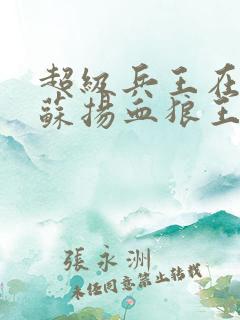 超級兵王在
蘇揚血狼王
張永洲
未任同意禁止转载